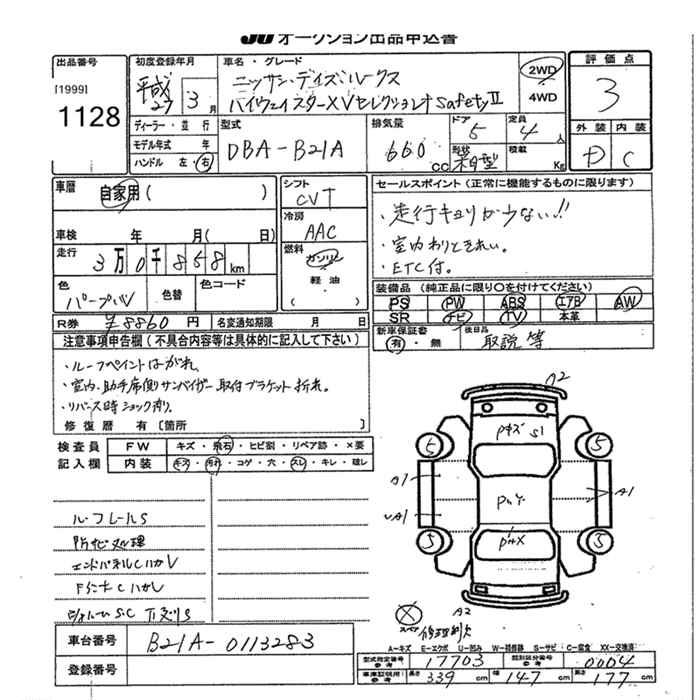 JU オークション出品申込書
出品番号 初度登録年月 車名・グレード 評価点
[1999] 平成27 3月 ニッサン・デイズ・ルークス 2WD 3
1128 ハイウェイスターX Vセレクション+SafetyⅡ 4WD
ディーラー・並行 型式 排気量 ドア 定員 外装 内装
モデル年式 年 DBA-B21A 660cc 5 4人 D C
ハンドル 左・右 形状 積載 Kg
車歴 自家用( ) シフト CVT セールスポイント(正常に機能するものに限ります)
冷房 AAC ・走行キョリが少ない!!
車検 年 月( 日) ・室内わりときれい。
走行 3万0千858km 燃料 ガソリン 軽油 ・ETC付。
色 パープルV 色替 色コード 装備品(純正品に限り○を付けてください)
PS PW ABS エアB AW
SR ナビ TV 本革
R券 ¥8860円 名変通知期限 月 日 新車保証書 後日品
有・無 取説等
注意事項申告欄(不具合内容等は具体的に記入して下さい)
・ルーフペイントはがれ。
・室内、助手席側サンバイザー取付ブラケット折れ。
・リバース時ショック有り。
修復歴 有[箇所
検査員 FW キズ・飛石・ヒビ割・リペア跡・×要
記入欄 内装 キズ・汚れ・コゲ・穴・スレ・キレ・破レ
A2
Pキズ S1
5 5
A1 A1
5 5
A2
ルーフレールS
防サビ処理
エンドパネルCハガV
車台番号 B21A-0113283
登録番号
A-キズ E-エクボ U-凹み W-補修跡 S-サビ C-腐食 XX-交換済
型式指定番号 参考 17703 類別区分番号 参考 0004
車庫証明用 参考 長さ 339cm 幅 147cm 高さ 177cm